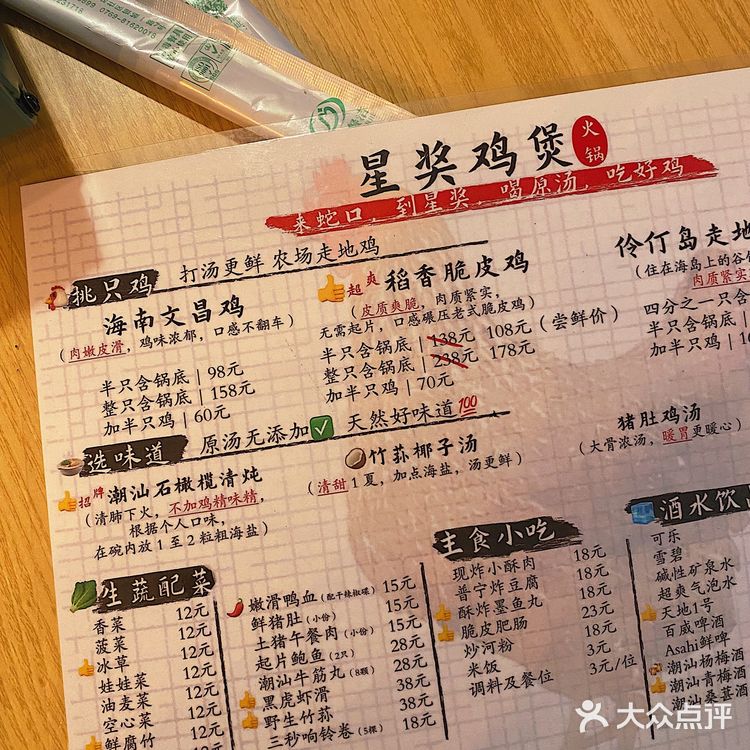 0769-81620016
星奖鸡煲
火锅
来蛇口,到星奖,喝原汤 吃好鸡
挑只鸡
打汤更鲜 农场走地鸡
海南文昌鸡
(肉嫩皮滑,鸡味浓郁,口感不翻车)
半只含锅底 | 98元
整只含锅底 | 158元
加半只鸡 | 60元
超爽
稻香脆皮鸡
(皮质爽脆,肉质紧实,
无需起片,口感碾压老式脆皮鸡)
半只含锅底 | 138元 108元 (尝鲜价)
整只含锅底 | 238元 178元
加半只鸡 | 70元
伶仃岛走地
(住在海岛上的谷
肉质紧实
四分之一只含
半只含锅
加半只鸡
选味道
原汤无添加 天然好味道 100
招牌 潮汕石橄榄清炖
(清肺下火,不加鸡精味精,
根据个人口味,
在碗内放1至2粒粗海盐)
竹荪椰子汤
(清甜1夏,加点海盐,汤更鲜)
猪肚鸡汤
(大骨浓汤,暖胃更暖心)
生蔬配菜
香菜 12元
菠菜 12元
冰草 12元
娃娃菜 12元
油麦菜 12元
空心菜 12元
鲜腐竹 12元
嫩滑鸭血(配干辣椒碟) 15元
鲜猪肚(小份) 15元
土猪午餐肉(小份) 15元
起片鲍鱼(2只) 28元
潮汕牛筋丸(8颗) 28元
黑虎虾滑 38元
野生竹荪 38元
三秒响铃卷(5棵) 18元
主食小吃
现炸小酥肉 18元
普宁炸豆腐 18元
酥炸墨鱼丸 23元
脆皮肥肠 18元
炒河粉 3元
米饭 3元/位
调料及餐位
酒水饮
可乐
雪碧
碱性矿泉水
超爽气泡水
天地1号
百威啤酒
Asahi鲜啤
潮汕杨梅酒
潮汕青梅酒
潮汕桑葚酒
大众点评